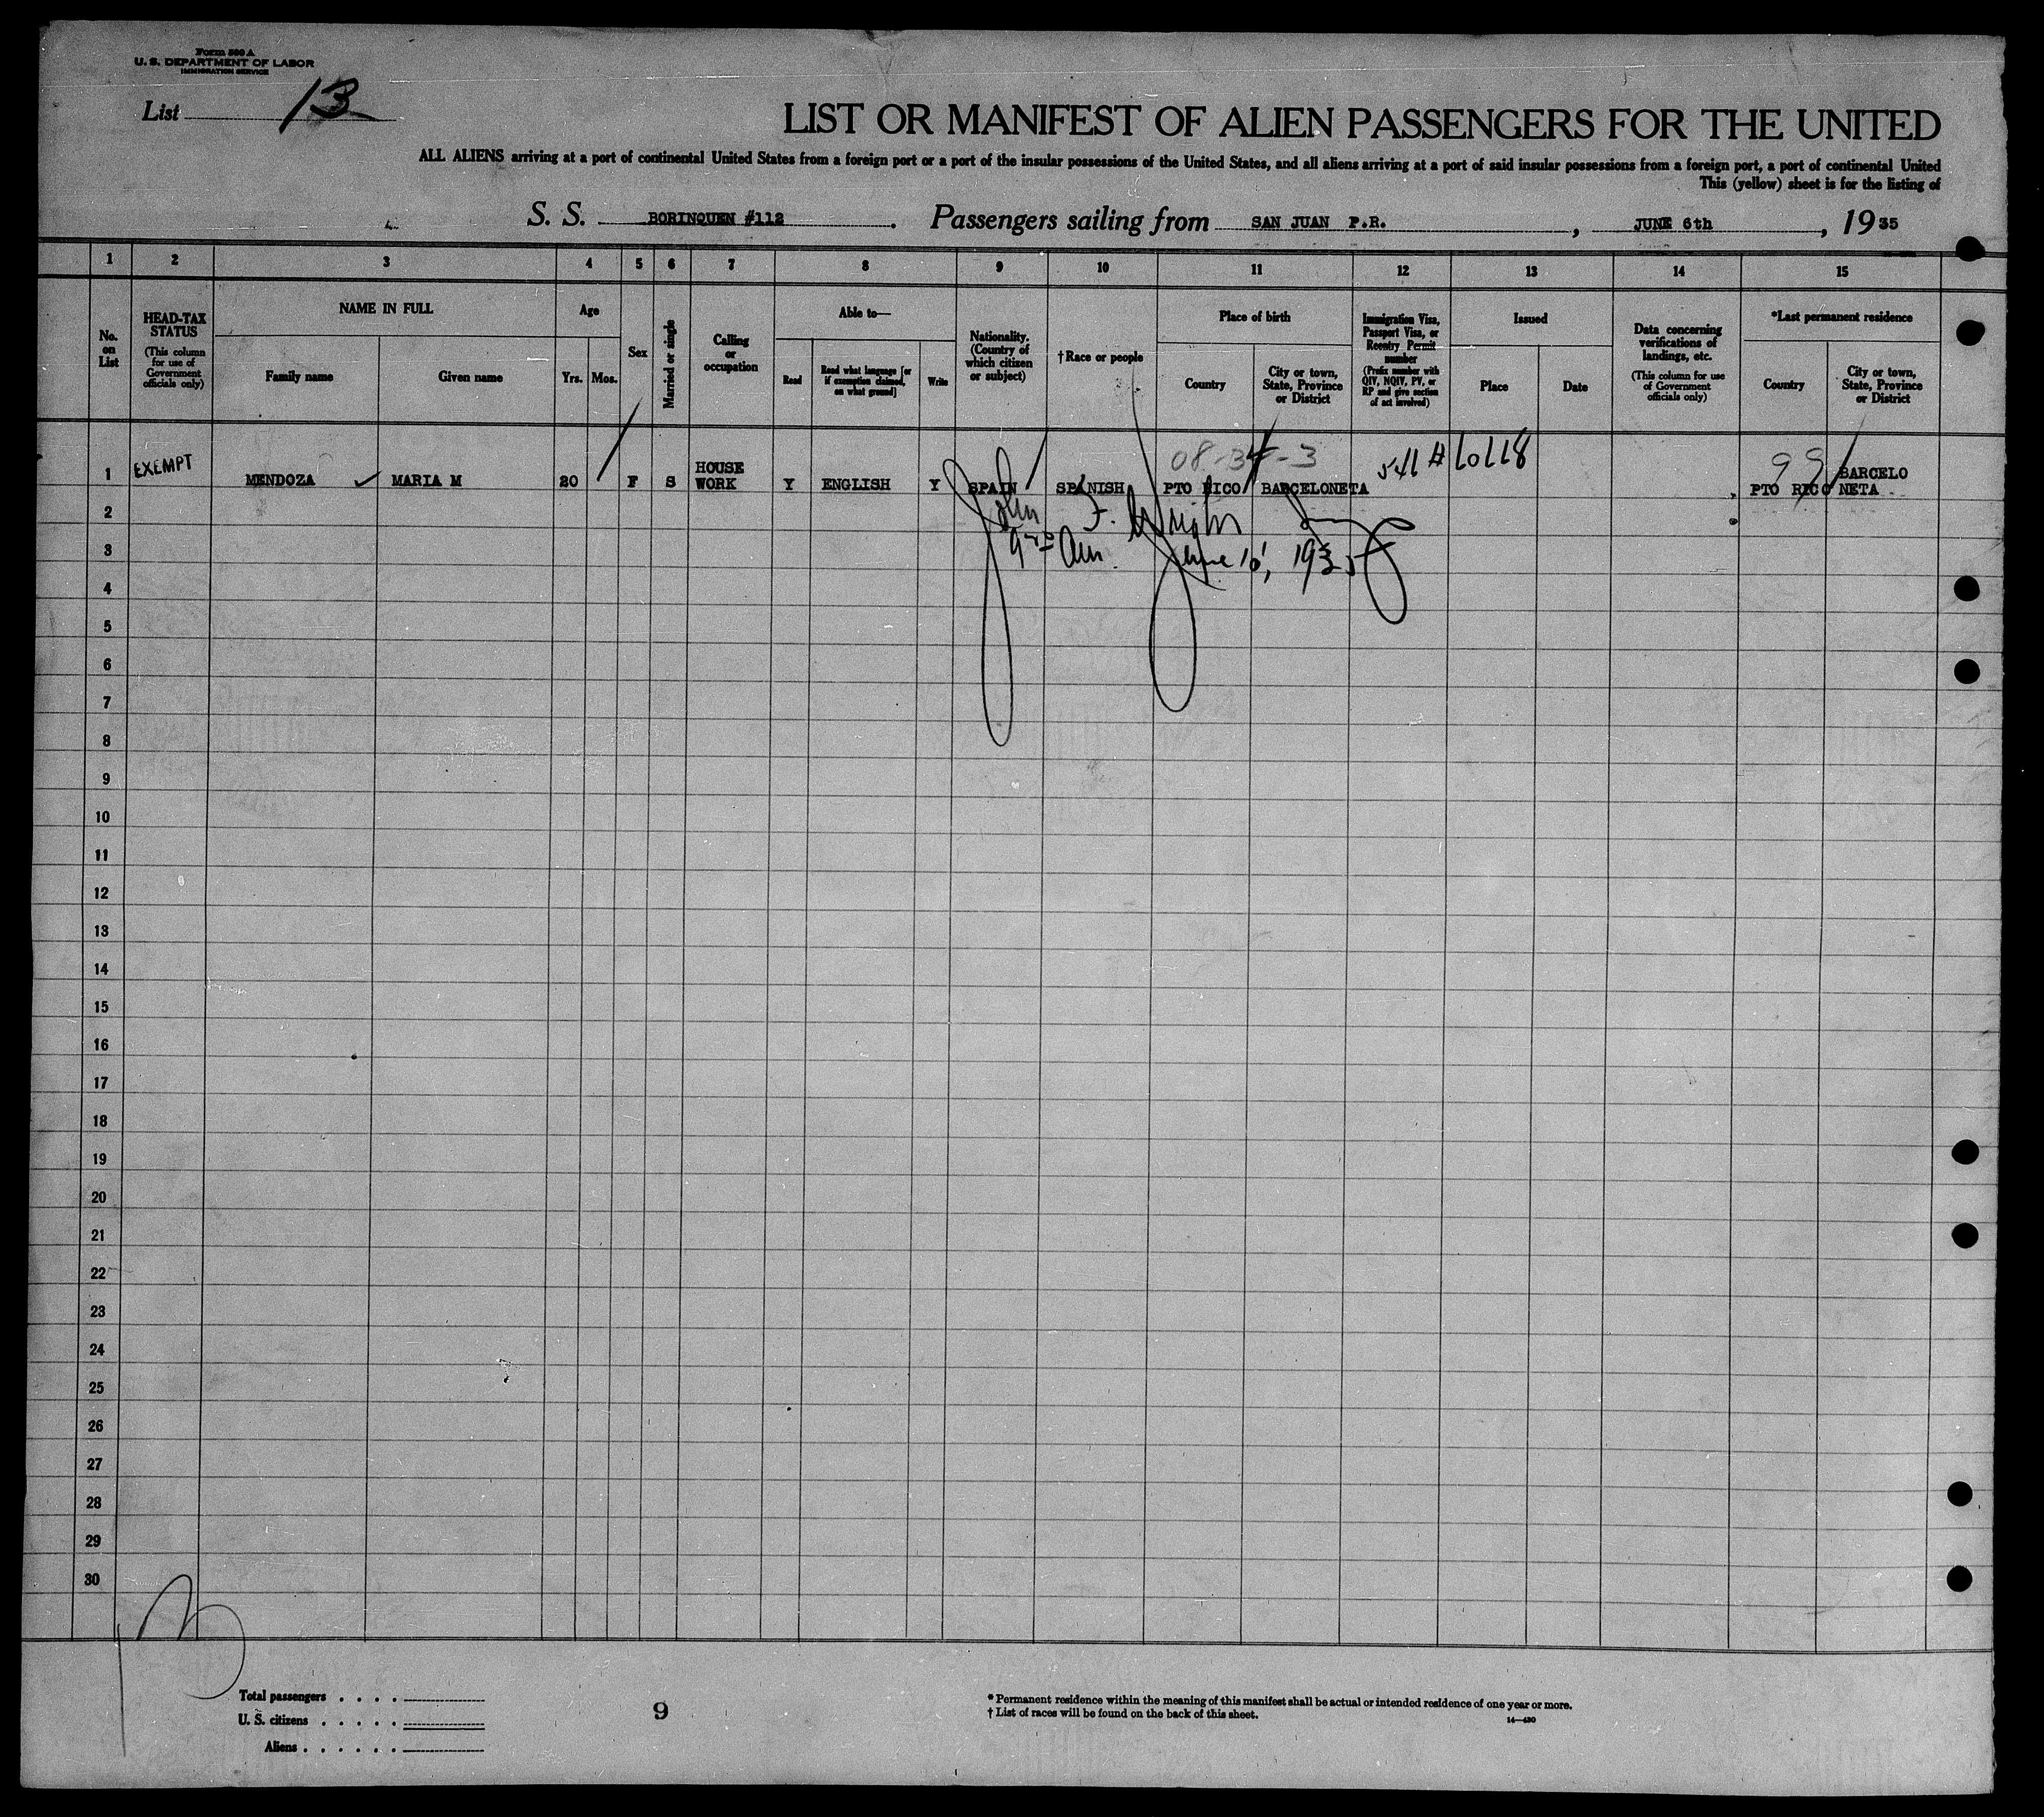 Form 500 A
U. S. DEPARTMENT OF LABOR
IMMIGRATION SERVICE
List 13
LIST OR MANIFEST OF ALIEN PASSENGERS FOR THE UNITED
ALL ALIENS arriving at a port of continental United States from a foreign port or a port of the insular possessions of the United States, and all aliens arriving at a port of said insular possessions from a foreign port, a port of continental United
This (yellow) sheet is for the listing of
S. S. BORINQUEN #112. Passengers sailing from SAN JUAN P.R., JUNE 6th, 1935
1 2 3 4 5 6 7 8 9 10 11 12 13 14 15
No. on List
HEAD-TAX STATUS
(This column for use of Government officials only)
NAME IN FULL
Family name
Given name
Age
Yrs. Mos.
Sex
Married or single
Calling or occupation
Able to—
Read
Read what language [or if exemption claimed, on what ground]
Write
Nationality. (Country of which citizen or subject)
†Race or people
Place of birth
Country
City or town, State, Province or District
Immigration Visa, Passport Visa, or Reentry Permit number
(Prefix number with QIV, NQIV, PV, or RP and give section of act involved)
Issued
Place
Date
Data concerning verifications of landings, etc.
(This column for use of Government officials only)
*Last permanent residence
Country
City or town, State, Province or District
08-34-3
99
1 EXEMPT MENDOZA MARIA M 20 F S HOUSE WORK Y ENGLISH Y SPAIN SPANISH PTO RICO BARCELONETA PTO RICO BARCELO NETA
2
John F. Wright
3
June 10, 1935
4
5
6
7
8
9
10
11
12
13
14
15
16
17
18
19
20
21
22
23
24
25
26
27
28
29
30
Total passengers . . . .
U. S. citizens . . . . .
Aliens . . . . . .
9
* Permanent residence within the meaning of this manifest shall be actual or intended residence of one year or more.
† List of races will be found on the back of this sheet.
14—430